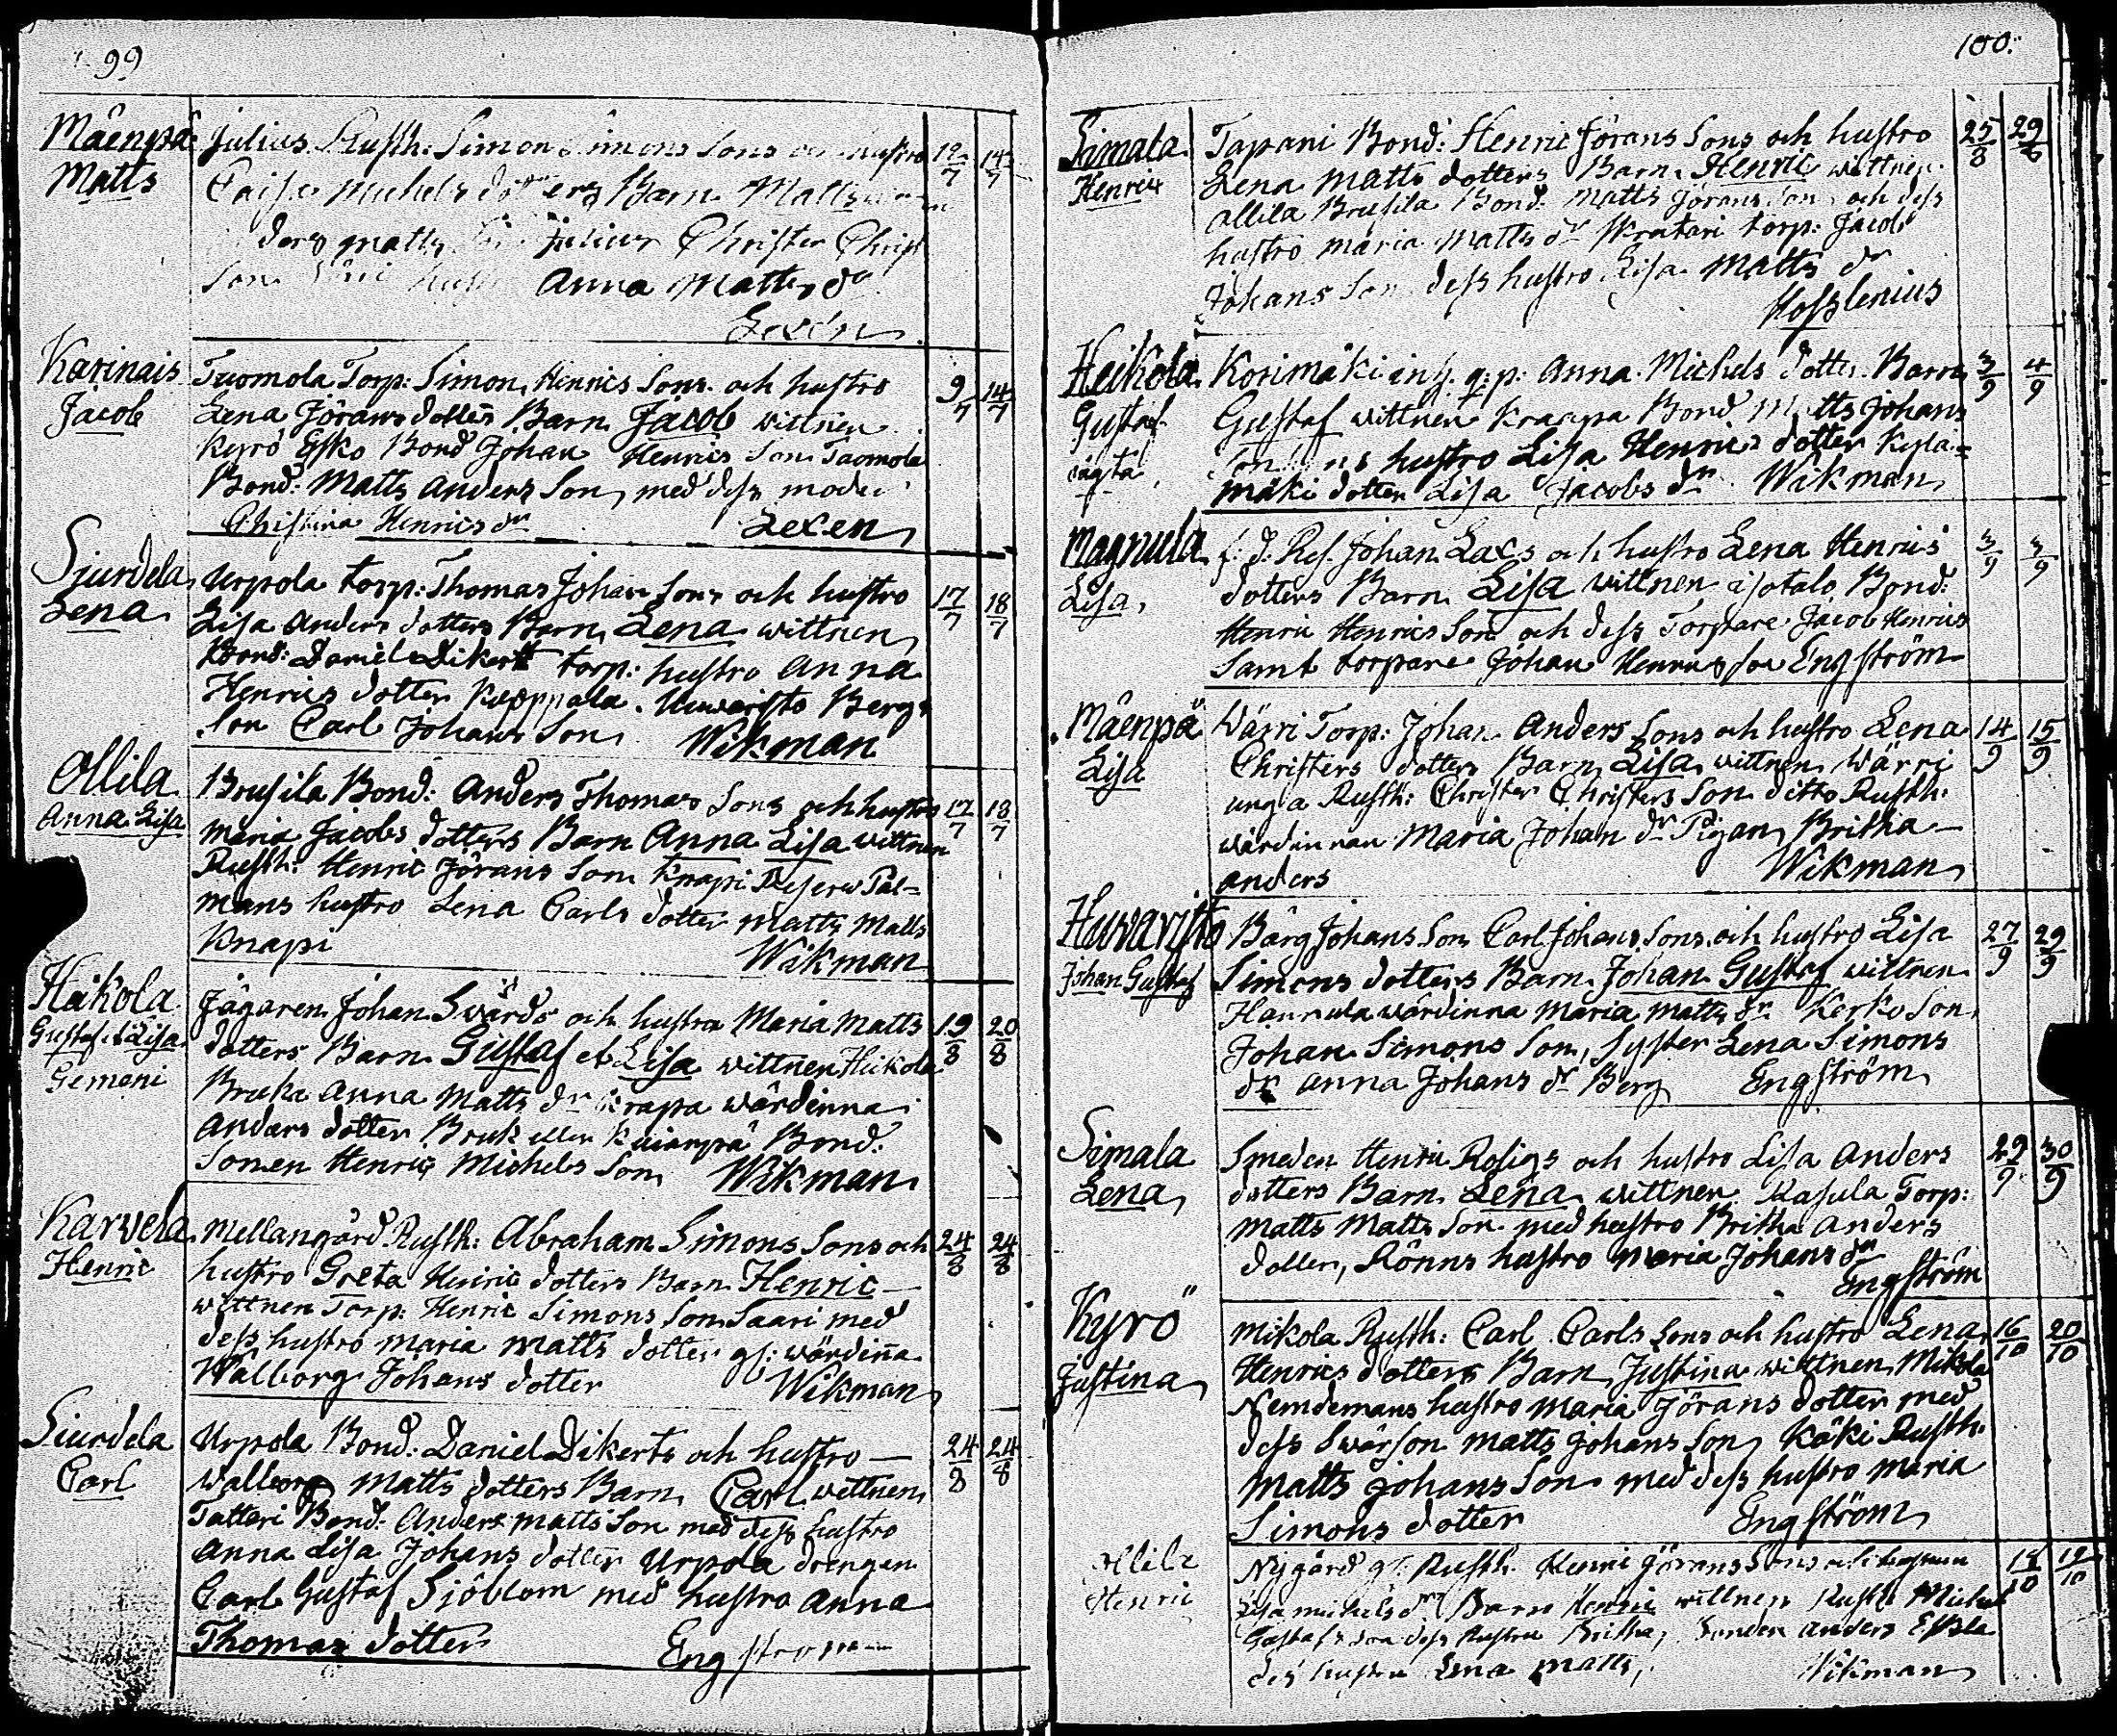 99
Mäenpä Julius Rusth: Simon Simons Sons och hustro 12/7 14/7
Matts Caisa Michels dotters Barn Matts
Matts Julius Christer Christ
Son Anna Matts dr
Lexén
Karinais Tuomola Torp: Simon Henrics Sons och hustro 9/7 14/7
Jacob Lena Jörans dotters Barn Jacob wittnen
Kyrö Esko Bond Johan Henrics Son Tuomola
Bond: Matts Anders Son, med dess moder
Christina Henrics dr Lexen
Sjurdela Urpola torp: Thomas Johans Sons och hustro 17/7 18/7
Lena Lisa Anders dotters Barn Lena wittnen
Bond: Daniel Dikert torp: hustro Anna
Henrics dotter Keppola Huwaristo Bergs
son Carl Johans Son Wikman
Ollila Brusila Bond: Anders Thomas Sons och hustro 17/7 18/7
Anna Lisa Maria Jacobs dotters Barn Anna Lisa wittnen
Rusth: Henric Jörans Son Knapi Reserv Pal-
mans hustro Lena Carls dotter Matts Matts
Knapi Wikman
Heikola Jägaren Johan Swärds och hustro Maria Matts 19/8 20/8
Gustaf et Lisa dotters Barn Gustaf et Lisa wittnen Heikola
Gemeni Anna Matts dr Krapa wärdinna
Anders dotter Bond:
Sonen Henric Michels Son Wikman
Karvela Mellangård Rusth: Abraham Simons Sons och 24/8 24/8
Henric hustro Greta Henrics dotters Barn Henric —
wittnen Torp: Henric Simons Son Saari med
dess hustro Maria Matts dotter gl: wärdiña
Walborg Johans dotter Wikman
Siurdela Urpola Bond: Daniel Dikerts och hustro — 24/8 24/8
Carl Walborg Matts dotters Barn Carl wittnen
Tatteri Bond: Anders Matts Son med dess hustro
Anna Lisa Johans dotter Urpola drengen
Carl Gustaf Sjöblom med hustro Anna
Thomas dotter Engström
100.
Simala Tapani Bond: Henric Jörans Sons och hustro 25/8 29/8
Henric Lena Matts dotters Barn Henric wittnen
Ollila Brusila Bond: Matts Jörans Son och dess
hustro Maria Matts dr torp: Jacob
Johans Son dess hustro Lisa Matts dr
Hosslenius
Heikola Korimäki inh. q:p: Anna Michels dotters Barn 3/9 4/9
Gustaf Gustaf wittnen Kraapa Bond Matts Johans
oägta Son hustro Lisa Henrics dotter Kyla=
mäki dotter Lisa Jacobs dr Wikman
Magnula f: d: Res. Johan Lacs och hustro Lena Henrics 3/9 3/9
Lisa dotters Barn Lisa wittnen Isotalo Bond:
Henric Henrics Son och dess Torpare Jacob Henrics
Samt torpare Johan Henrics son Engström
Mäenpä Wärri Torp: Johan Anders Sons och hustro Lena 14/9 15/9
Lisa Christers dotters Barn Lisa wittnen Wärri
unga Rusth: Christer Christers Son ditto Rusth:
wärdinnan Maria Johan dr Pigan Britha —
Anders Wikman
Huvaristo Bärg Johans Son Carl Johans Sons och hustro Lisa 27/9 29/9
Johan Gustaf Simons dotters Barn Johan Gustaf wittnen
Hannula wärdinna Maria Matts dr Kerko Son
Johan Simons Son, Syster Lena Simons
dr Anna Johans dr Berg Engström
Simala Smeden Henric Rosigs och hustro Lisa Anders 29/9 30/9
Lena dotters Barn Lena wittnen Kasula Torp:
Matts Matts Son med hustro Britha Anders
dotter, Rönns hustro Maria Johans dr
Engström
Kyrö Mikola Rusth: Carl Carls Sons och hustro Lena 16/10 20/10
Justina Henrics dotters Barn Justina wittnen Mikola
Nemdemans hustro Maria Jörans dotter med
dess Swärson Matts Johans Son, Käki Rusth:
Matts Johans Son med dess hustro Maria
Simons dotter Engström
Ollila Nygård gl: Rusth. Henric Görans Sons och hustru 18/10 19/10
Henric Lisa Michels dr Barn Henric wittnen Rusth Michel
Gustafs Son dess hustru Britha, Bonden Anders
des hustru Lena Matts, Wikman